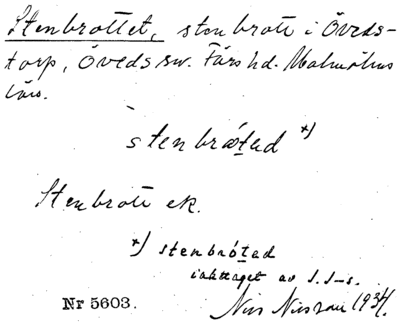 Stenbrottet, stenbrott i Öveds-
torp, Öveds sn. Färs hd. Malmöhus
län.
stenbrǻtad *)
Stenbrott ek.
*) stenbrótad
iakttaget av J. J-s.
Nr 5603. Nils Nilsson 1934.